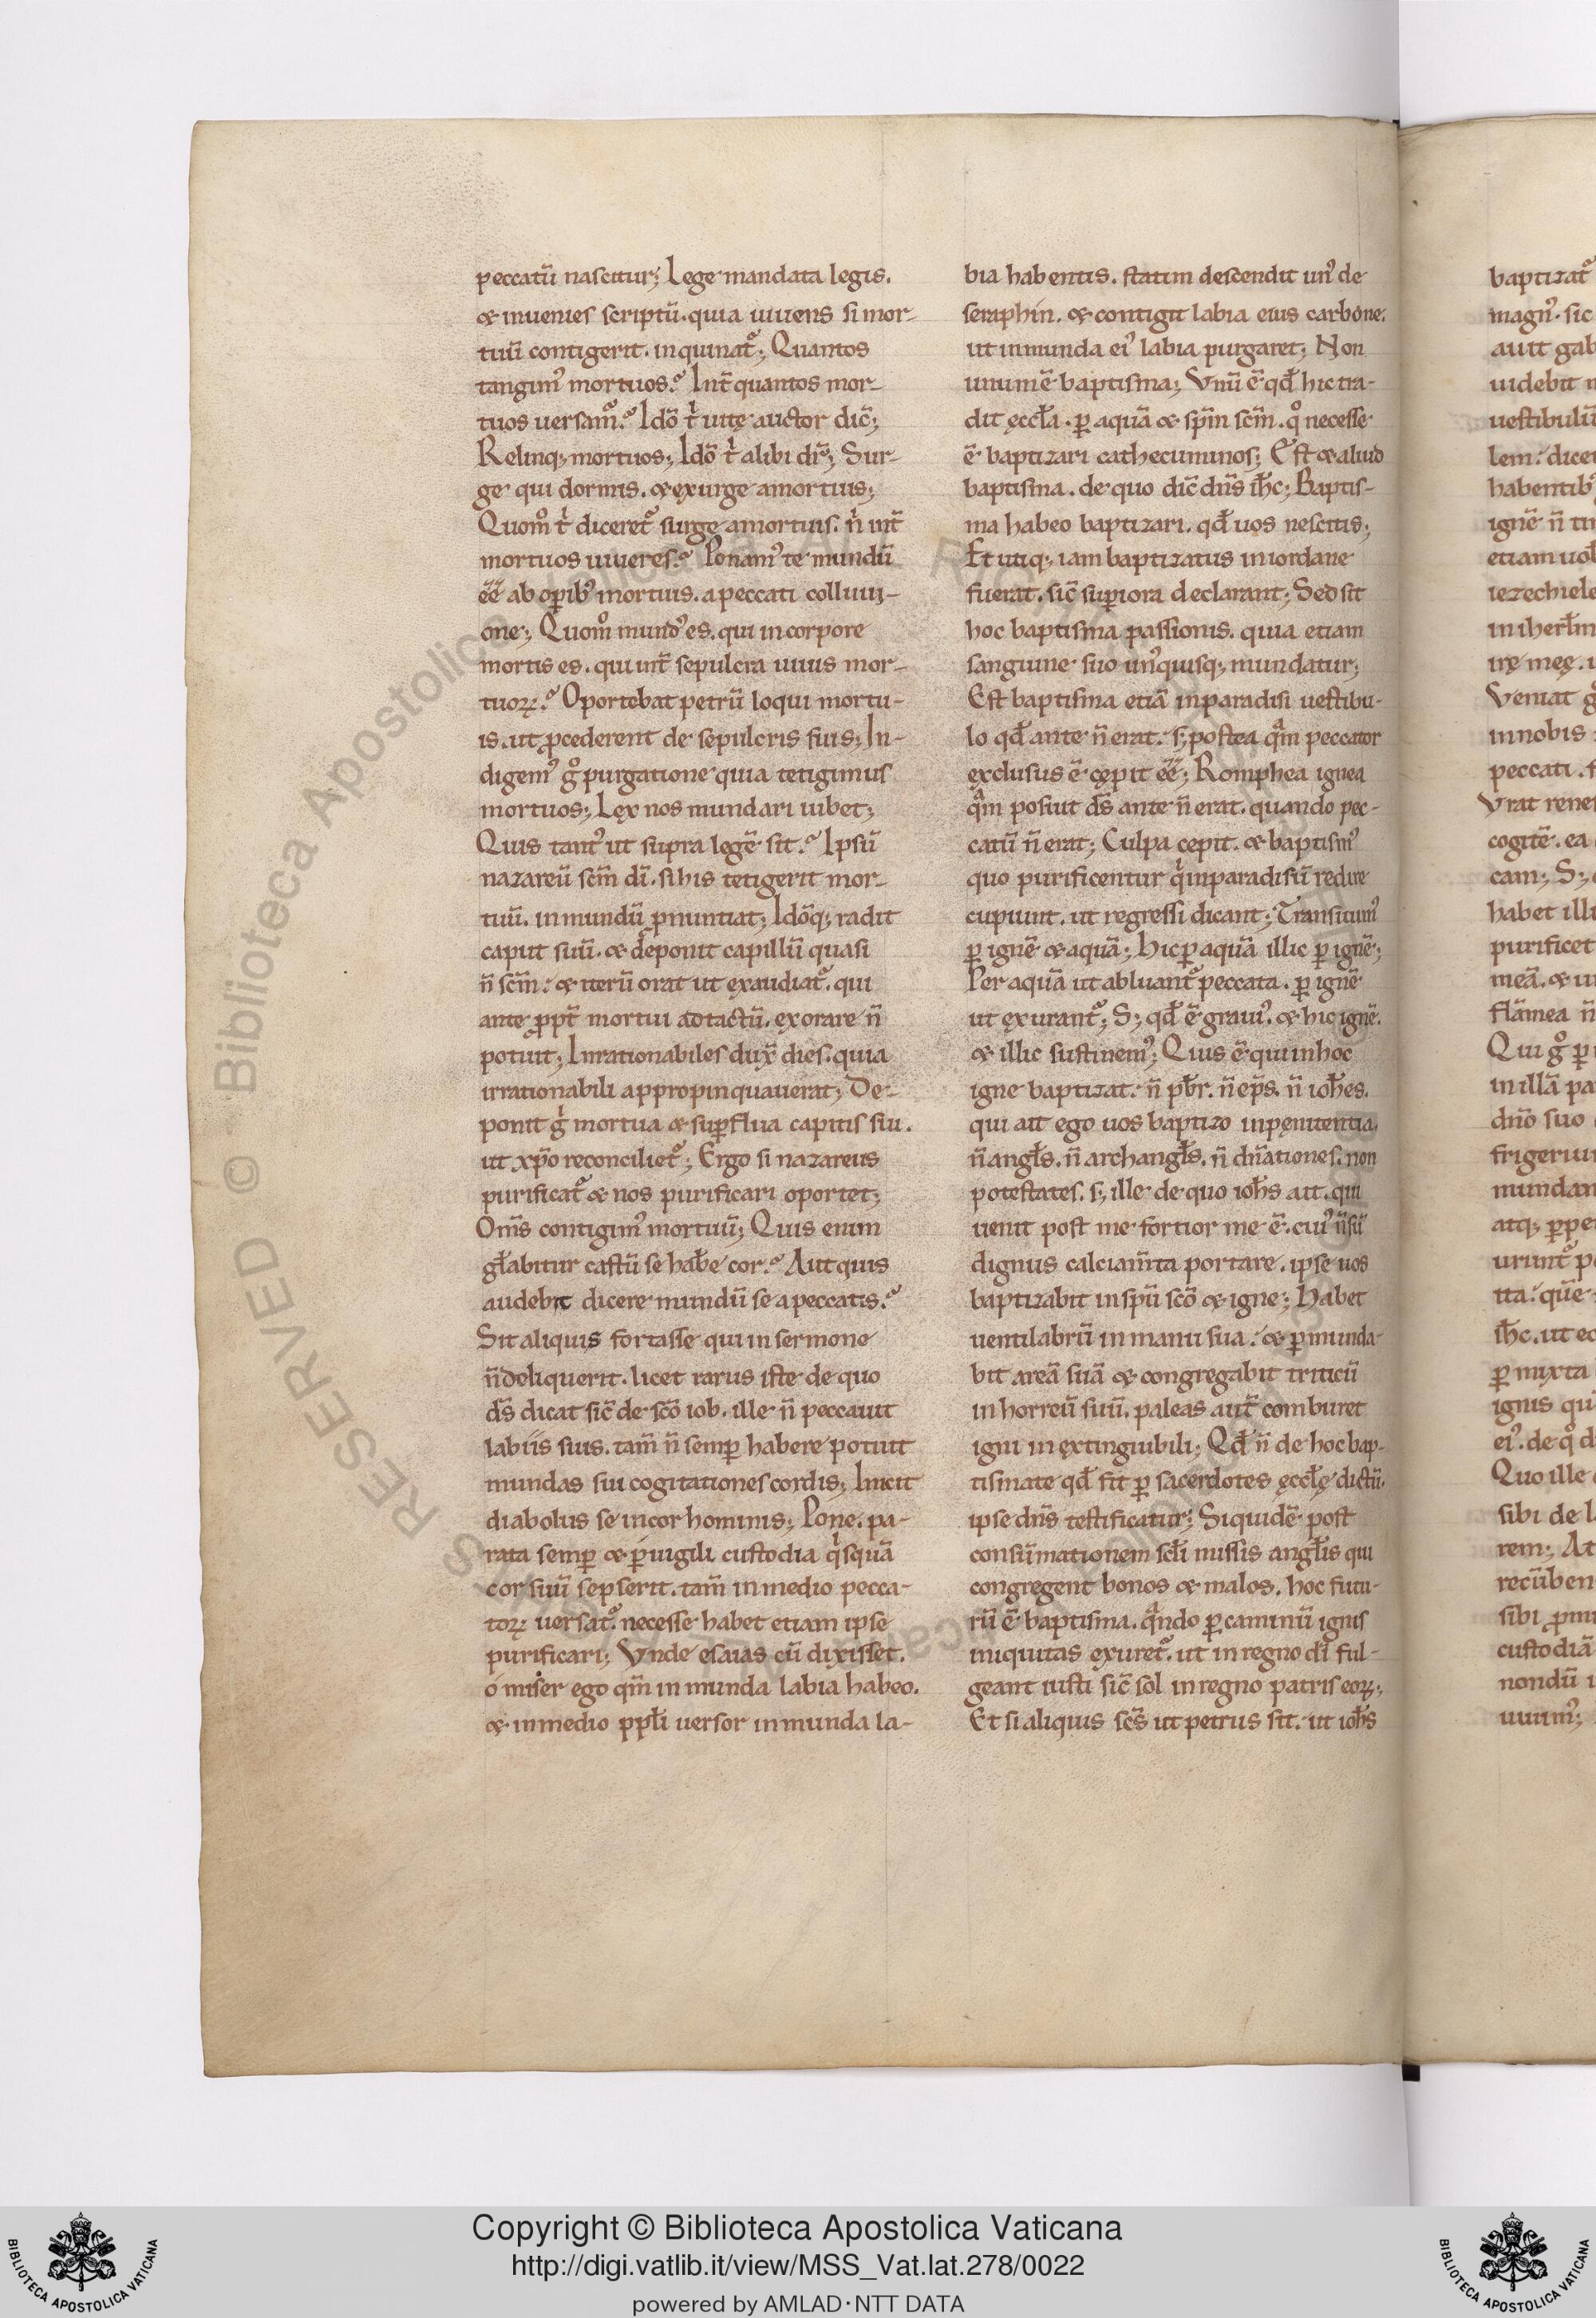 peccatū nascitur; Lege mandata legis.
& inuenies scriptū. quia uiuens si mor-
tuū contigerit. inquinat᷑; Quantos
tangim᷒ mortuos? Int̄ quantos mor-
tuos uersam᷒? Idō t᷑ uitę auctor dic̄;
Relinq; mortuos; Idō t᷑ alibi dr̄; Sur-
ge qui dormis. & exurge a mortuis;
Quom̊ t᷑ diceret᷑ surge a mortuis. n᷑ int̄
mortuos uiueres? Ponam᷒ te mundū
ēē ab oꝑib᷒ mortuis. a peccati colluui-
one; Quom̊ mund᷒ es. qui in corpore
mortis es. qui int̄ sepulcra uiuis mor-
tuoꝝ? Oportebat petrū loqui mortu-
is. ut ꝓcederent de sepulcris suis; In-
digem᷒ g̊ purgatione quia tetigimus
mortuos; Lex nos mundari iubet;
Quis tant᷒ ut supra legē sit? Ipsū
nazareū scm̄ dī. si his tetigerit mor-
tuū. inmundū ꝓnuntiat; Idōq; radit
caput suū. & deponit capillū quasi
n̄ scm̄: & iterū orat ut exaudiat᷑. qui
ante ꝓpt̄ mortui adtactū. exorare n̄
potuit; Inrationabiles dux̄ dies. quia
irrationabili appropinquauerat; De-
ponit g᷑ mortua & suꝑflua capitis sui.
ut xp̄o reconciliet᷑; Ergo si nazareus
purificat᷑ & nos purificari oportet;
Om̄s contigim᷒ mortuū; Quis enim
gl̄abitur castū se hab̄e cor? Aut quis
audebit dicere mundū se a peccatis?
Sit aliquis fortasse qui in sermone
n̄ deliquerit. licet rarus iste de quo
ds̄ dicat sic̄ de scō iob. ille n̄ peccauit
labiis suis. tam̄ n̄ semꝑ habere potuit
mundas sui cogitationes cordis; Inicit
diabolus se in cor hominis; Pone. pa-
rata semꝑ & ꝑuigili custodia q᷑squā
cor suū sepserit. tam̄ in medio pecca-
toꝝ uersat᷑. necesse habet etiam ipse
purificari; Vnde esaias cū dixisset.
ó miser ego qm̄ inmunda labia habeo.
& in medio ppl̄i uersor inmunda la-
bia habentis. statim descendit un᷒ de
seraphin. & contigit labia eius carbone.
ut inmunda ei᷒ labia purgaret; Non
unum ē baptisma; Vnū ē qd̄ hic tra-
dit ęccl̄a. ꝑ aquā & spm̄ scm̄. q̊ necesse
ē baptizari cathecuminos; Est & aliud
baptisma. de quo dic̄ dn̄s ih̄c; Baptis-
ma habeo baptizari. qd̄ uos nescitis;
Et utiq; iam baptizatus in iordane
fuerat. sic̄ suꝑiora declarant; Sed sit
hoc baptisma passionis. quia etiam
sanguine suo un᷒quisq; mundatur;
Est baptisma etiā in paradisi uestibu-
lo qd̄ ante n̄ erat. s; postea qᵃm peccator
exclusus ē cępit ēē; Romphea ignea
qᵃm posuit ds̄ ante n̄ erat. quando pec-
catū n̄ erat; Culpa cepit. & baptism᷒
quo purificentur q᷑ in paradisū redire
cupiunt. ut regressi dicant; Transiuim᷒
ꝑ ignē & aquā; Hic ꝑ aquā illic ꝑ ignē;
Per aquā ut abluant᷑ peccata. ꝑ ignē
ut exurant᷑; S; qd̄ ē graui᷒. & hic ignē.
& illic sustinem᷒; Quis ē qui in hoc
igne baptizat. n̄ pb̄r. n̄ ep̄s. n̄ ioh̄es.
qui ait ego uos baptizo in pęnitentia.
n̄ angl̄s. n̄ archangl̄s. n̄ dn̄ationes. non
potestates. s; ille de quo ioh̄s ait. qui
uenit post me fortior me ē. cui᷒ n̄ sū
dignus calciam̄ta portare. ipse uos
baptizabit in spū scō & igne; Habet
uentilabrū in manu sua: & ꝑmunda-
bit areā suā & congregabit triticū
in horreū suū. paleas aut̄ comburet
igni inextinguibili; Qd̄ n̄ de hoc bap-
tismate qd̄ fit ꝑ sacerdotes ęccl̄ę dictū.
ipse dn̄s testificatur; Siquidē post
consūmationem scl̄i missis angl̄is qui
congregent bonos & malos. hoc futu-
rū ē baptisma. qᵃndo ꝑ caminū ignis
iniquitas exuret᷑. ut in regno dī ful-
geant iusti sic̄ sol in regno patris eoꝝ;
Et si aliquis scs̄ ut petrus sit. ut ioh̄s
baptizat᷑
magn᷒. sic
auit gab
uidebit
uestibulū
lem: dice
habentib᷒
ignē n̄ ti
etiam uob
iezechiele
in iherl̄m
irę meę.
Veniat
in nobis
peccati.
Vrat rene
cogitē. ea
cam; S;
habet illi
purificet
meā. & u
flāmea n̄
Qui g̊ ꝑ
in illā pa
dn̄o suo
frigeriu
mundan
atq; ꝑpe
urunt᷑ p
ita: quē
ih̄c. ut ec
ꝑmixta
ignis qu
ei᷒. de q̊ d
Quo ille
sibi de l
rem; At
recūben
sibi ꝓmi
custodiā
nondū
uiuim᷒;
© Biblioteca Apostolica Vaticana
RESERVED
Copyright © Biblioteca Apostolica Vaticana
http://digi.vatlib.it/view/MSS_Vat.lat.278/0022
powered by AMLAD·NTT DATA
BIBLIOTECA APOSTOLICA VATICANA
BIBLIOTECA APOSTOLICA VATICANA